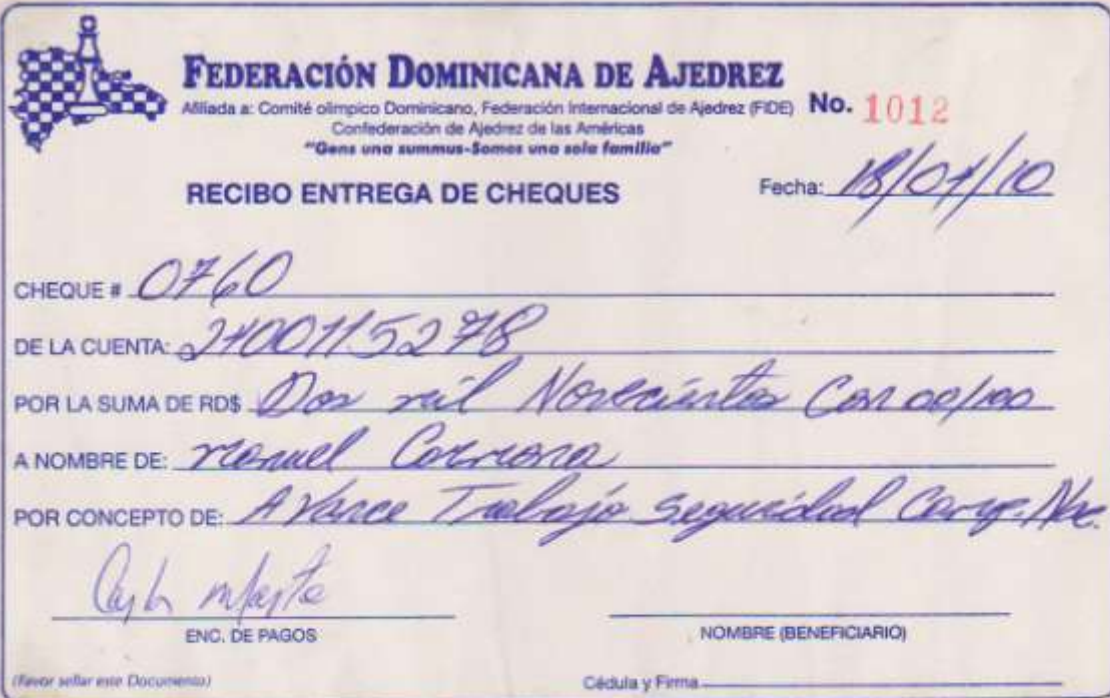 FEDERACIÓN DOMINICANA DE AJEDREZ
Afiliada a: Comité olímpico Dominicano, Federación Internacional de Ajedrez (FIDE) No. 1012
Confederación de Ajedrez de las Américas
"Gens una summus-Somos una sola familia"
RECIBO ENTREGA DE CHEQUES Fecha: 18/01/10
CHEQUE # 0760
DE LA CUENTA: 2400115278
POR LA SUMA DE RD$ Dos mil Novecientos Con 00/100
A NOMBRE DE: Manuel
POR CONCEPTO DE: Avance Trabajo Seguridad
ENC. DE PAGOS NOMBRE (BENEFICIARIO)
(Favor sellar este Documento) Cédula y Firma